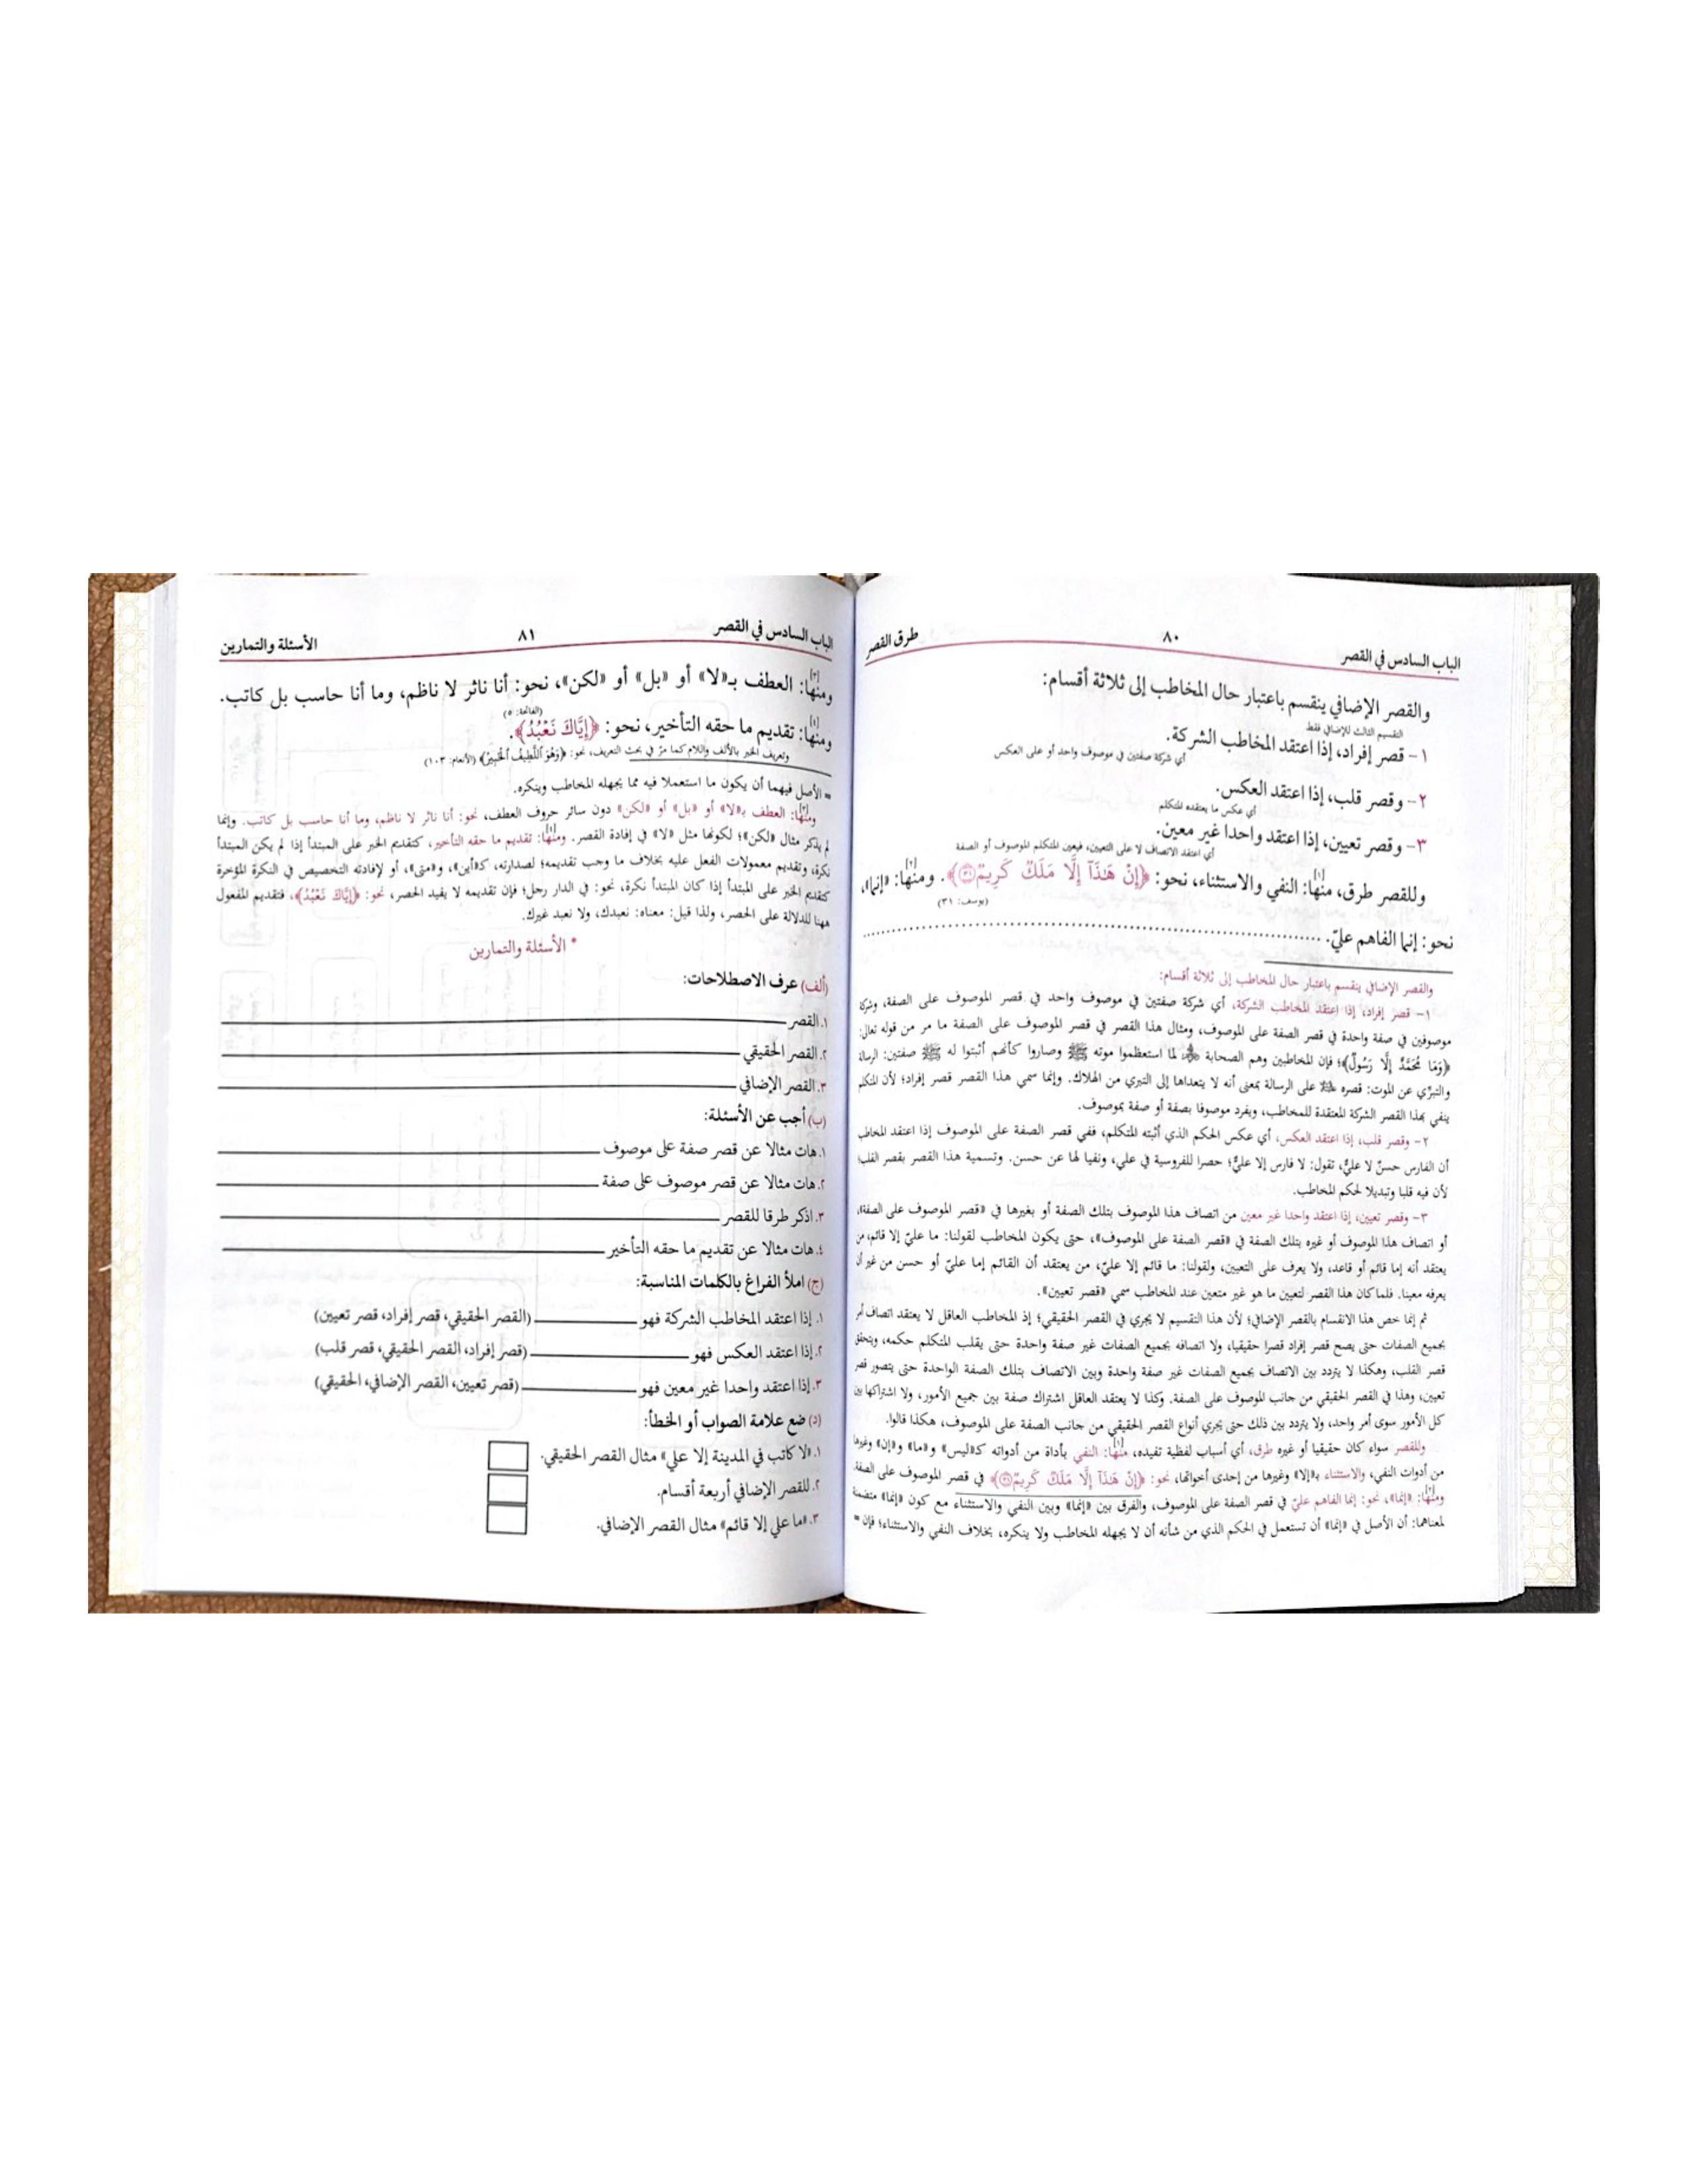 الباب السادس في القصر ٨٠ طرق القصر
والقصر الإضافي ينقسم باعتبار حال المخاطب إلى ثلاثة أقسام:
التقسيم الثالث للإضافي فقط
١- قصر إفراد، إذا اعتقد المخاطب الشركة.
أي شركة صفتين في موصوف واحد أو على العكس
٢- وقصر قلب، إذا اعتقد العكس.
أي عكس ما يعتقده المتكلم
٣- وقصر تعيين، إذا اعتقد واحدا غير معين.
أي اعتقد الاتصاف لا على التعيين، فيعين المتكلم الموصوف أو الصفة
وللقصر طرق، منها:[١] النفي والاستثناء، نحو: ﴿إِنْ هَٰذَآ إِلَّا مَلَكٌ كَرِيمٌ ۝٣١﴾. ومنها:[٢] «إنما»،
(يوسف: ٣١)
نحو: إنما الفاهم عليّ. ................................................
والقصر الإضافي ينقسم باعتبار حال المخاطب إلى ثلاثة أقسام:
١- قصر إفراد، إذا اعتقد المخاطب الشركة، أي شركة صفتين في موصوف واحد في قصر الموصوف على الصفة، وشركة
موصوفين في صفة واحدة في قصر الصفة على الموصوف، ومثال هذا القصر في قصر الموصوف على الصفة ما مر من قوله تعالى:
﴿وَمَا مُحَمَّدٌ إِلَّا رَسُولٌ﴾؛ فإن المخاطبين وهم الصحابة ﷺ لما استعظموا موته ﷺ وصاروا كأنهم أثبتوا له ﷺ صفتين: الرسالة
والتبرّي عن الموت: قصره ﷺ على الرسالة بمعنى أنه لا يتعداها إلى التبري من الهلاك. وإنما سمي هذا القصر قصر إفراد؛ لأن المتكلم
ينفي بهذا القصر الشركة المعتقدة للمخاطب، ويفرد موصوفا بصفة أو صفة بموصوف.
٢- وقصر قلب، إذا اعتقد العكس، أي عكس الحكم الذي أثبته المتكلم، ففي قصر الصفة على الموصوف إذا اعتقد المخاطب
أن الفارس حسنٌ لا عليٌّ، تقول: لا فارس إلا عليٌّ؛ حصرا للفروسية في علي، ونفيا لها عن حسن. وتسمية هذا القصر بقصر القلب؛
لأن فيه قلبا وتبديلا لحكم المخاطب.
٣- وقصر تعيين، إذا اعتقد واحدا غير معين من اتصاف هذا الموصوف بتلك الصفة أو بغيرها في «قصر الموصوف على الصفة»،
أو اتصاف هذا الموصوف أو غيره بتلك الصفة في «قصر الصفة على الموصوف»، حتى يكون المخاطب لقولنا: ما عليّ إلا قائم، من
يعتقد أنه إما قائم أو قاعد، ولا يعرف على التعيين، ولقولنا: ما قائم إلا عليّ، من يعتقد أن القائم إما عليّ أو حسن من غير أن
يعرفه معينا. فلما كان هذا القصر لتعيين ما هو غير متعين عند المخاطب سمي «قصر تعيين».
ثم إنما خص هذا الانقسام بالقصر الإضافي؛ لأن هذا التقسيم لا يجري في القصر الحقيقي؛ إذ المخاطب العاقل لا يعتقد اتصاف أمر
بجميع الصفات حتى يصح قصر إفراد قصرا حقيقيا، ولا اتصافه بجميع الصفات غير صفة واحدة حتى يقلب المتكلم حكمه، ويتحقق
قصر القلب، وهكذا لا يتردد بين الاتصاف بجميع الصفات غير صفة واحدة وبين الاتصاف بتلك الصفة الواحدة حتى يتصور قصر
تعيين، وهذا في القصر الحقيقي من جانب الموصوف على الصفة. وكذا لا يعتقد العاقل اشتراك صفة بين جميع الأمور، ولا اشتراكها بين
كل الأمور سوى أمر واحد، ولا يتردد بين ذلك حتى يجري أنواع القصر الحقيقي من جانب الصفة على الموصوف، هكذا قالوا.
وللقصر سواء كان حقيقيا أو غيره طرق، أي أسباب لفظية تفيده، منها:[١] النفي بأداة من أدواته كـ«ليس» و«ما» و«إن» وغيرها
من أدوات النفي، والاستثناء بـ«إلا» وغيرها من إحدى أخواتها، نحو: ﴿إِنْ هَٰذَآ إِلَّا مَلَكٌ كَرِيمٌ ۝٣١﴾ في قصر الموصوف على الصفة.
ومنها:[٢] «إنما»، نحو: إنما الفاهم عليّ في قصر الصفة على الموصوف، والفرق بين «إنما» وبين النفي والاستثناء مع كون «إنما» متضمنة
لمعناهما: أن الأصل في «إنما» أن تستعمل في الحكم الذي من شأنه أن لا يجهله المخاطب ولا ينكره، بخلاف النفي والاستثناء؛ فإن =
الباب السادس في القصر ٨١ الأسئلة والتمارين
ومنها:[٣] العطف بـ«لا» أو «بل» أو «لكن»، نحو: أنا ناثر لا ناظم، وما أنا حاسب بل كاتب.
ومنها:[٤] تقديم ما حقه التأخير، نحو: ﴿إِيَّاكَ نَعْبُدُ﴾.
(الفاتحة: ٥)
وتعريف الخبر بالألف واللام كما مرّ في بحث التعريف، نحو: ﴿وَهُوَ ٱللَّطِيفُ ٱلْخَبِيرُ﴾ (الأنعام: ١٠٣)
= الأصل فيهما أن يكون ما استعملا فيه مما يجهله المخاطب وينكره.
ومنها:[٣] العطف بـ«لا» أو «بل» أو «لكن» دون سائر حروف العطف، نحو: أنا ناثر لا ناظم، وما أنا حاسب بل كاتب. وإنما
لم يذكر مثال «لكن»؛ لكونها مثل «لا» في إفادة القصر. ومنها:[٤] تقديم ما حقه التأخير، كتقديم الخبر على المبتدأ إذا لم يكن المبتدأ
نكرة، وتقديم معمولات الفعل عليه بخلاف ما وجب تقديمه؛ لصدارته، كـ«أين»، و«متى»، أو لإفادته التخصيص في النكرة المؤخرة
كتقديم الخبر على المبتدأ إذا كان المبتدأ نكرة، نحو: في الدار رجل؛ فإن تقديمه لا يفيد الحصر، نحو: ﴿إِيَّاكَ نَعْبُدُ﴾، فتقديم المفعول
ههنا للدلالة على الحصر، ولذا قيل: معناه: نعبدك، ولا نعبد غيرك.
* الأسئلة والتمارين
(ألف) عرف الاصطلاحات:
١. القصر
٢. القصر الحقيقي
٣. القصر الإضافي
(ب) أجب عن الأسئلة:
١. هات مثالا عن قصر صفة على موصوف
٢. هات مثالا عن قصر موصوف على صفة
٣. اذكر طرقا للقصر
٤. هات مثالا عن تقديم ما حقه التأخير
(ج) املأ الفراغ بالكلمات المناسبة:
١. إذا اعتقد المخاطب الشركة فهو ـــــــ (القصر الحقيقي، قصر إفراد، قصر تعيين)
٢. إذا اعتقد العكس فهو ـــــــ (قصر إفراد، القصر الحقيقي، قصر قلب)
٣. إذا اعتقد واحدا غير معين فهو ـــــــ (قصر تعيين، القصر الإضافي، الحقيقي)
(د) ضع علامة الصواب أو الخطأ:
١. «لا كاتب في المدينة إلا علي» مثال القصر الحقيقي.
٢. للقصر الإضافي أربعة أقسام.
٣. «ما علي إلا قائم» مثال القصر الإضافي.